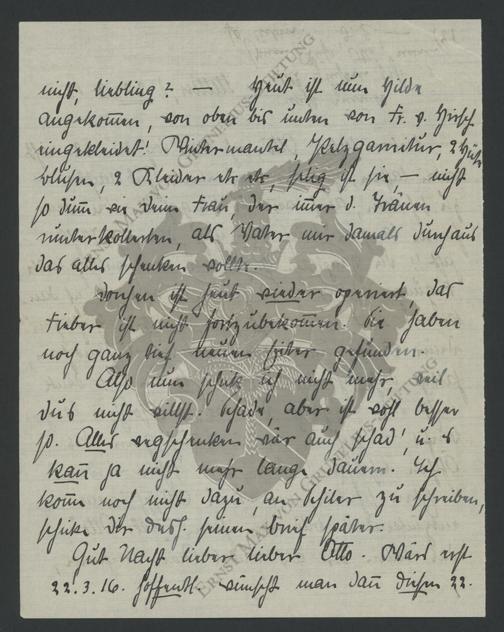 nicht, liebling? — Heut ist nun Hilde
angekommen, von oben bis unten von Fr. v. Hirsch
eingekleidet! Wintermantel, Pelzgarnitur, 2 Hüte
blusen, 2 Kleider etc etc, selig ist sie, — nicht
so dumm wie deine Frau, der immer d. Tränen
runterkollerten, als Vater mir damals durchaus
das alles schenken wollte.
ist heut wieder operiert, das
Fieber ist nicht fortzubekommen. Sie haben
noch ganz tief neuen Eiter gefunden.
Also nun schick ich nicht mehr, weil
du's nicht willst. Schade, aber ist wohl besser
so. Alles wegschenken wär auch schad', u. s
kann ja nicht mehr lange dauern. Ich
komm noch nicht dazu, an Schiler zu schreiben,
schicke dir desh. seinen brief später.
Gut Nacht lieber lieber Otto. Wärs erst
22.3.16. hoffentl. wünscht man dann diesen 22.
ERNST MAX VON GRUNELIUS-STIFTUNG
ERNST MAX VON GRUNELIUS-STIFTUNG